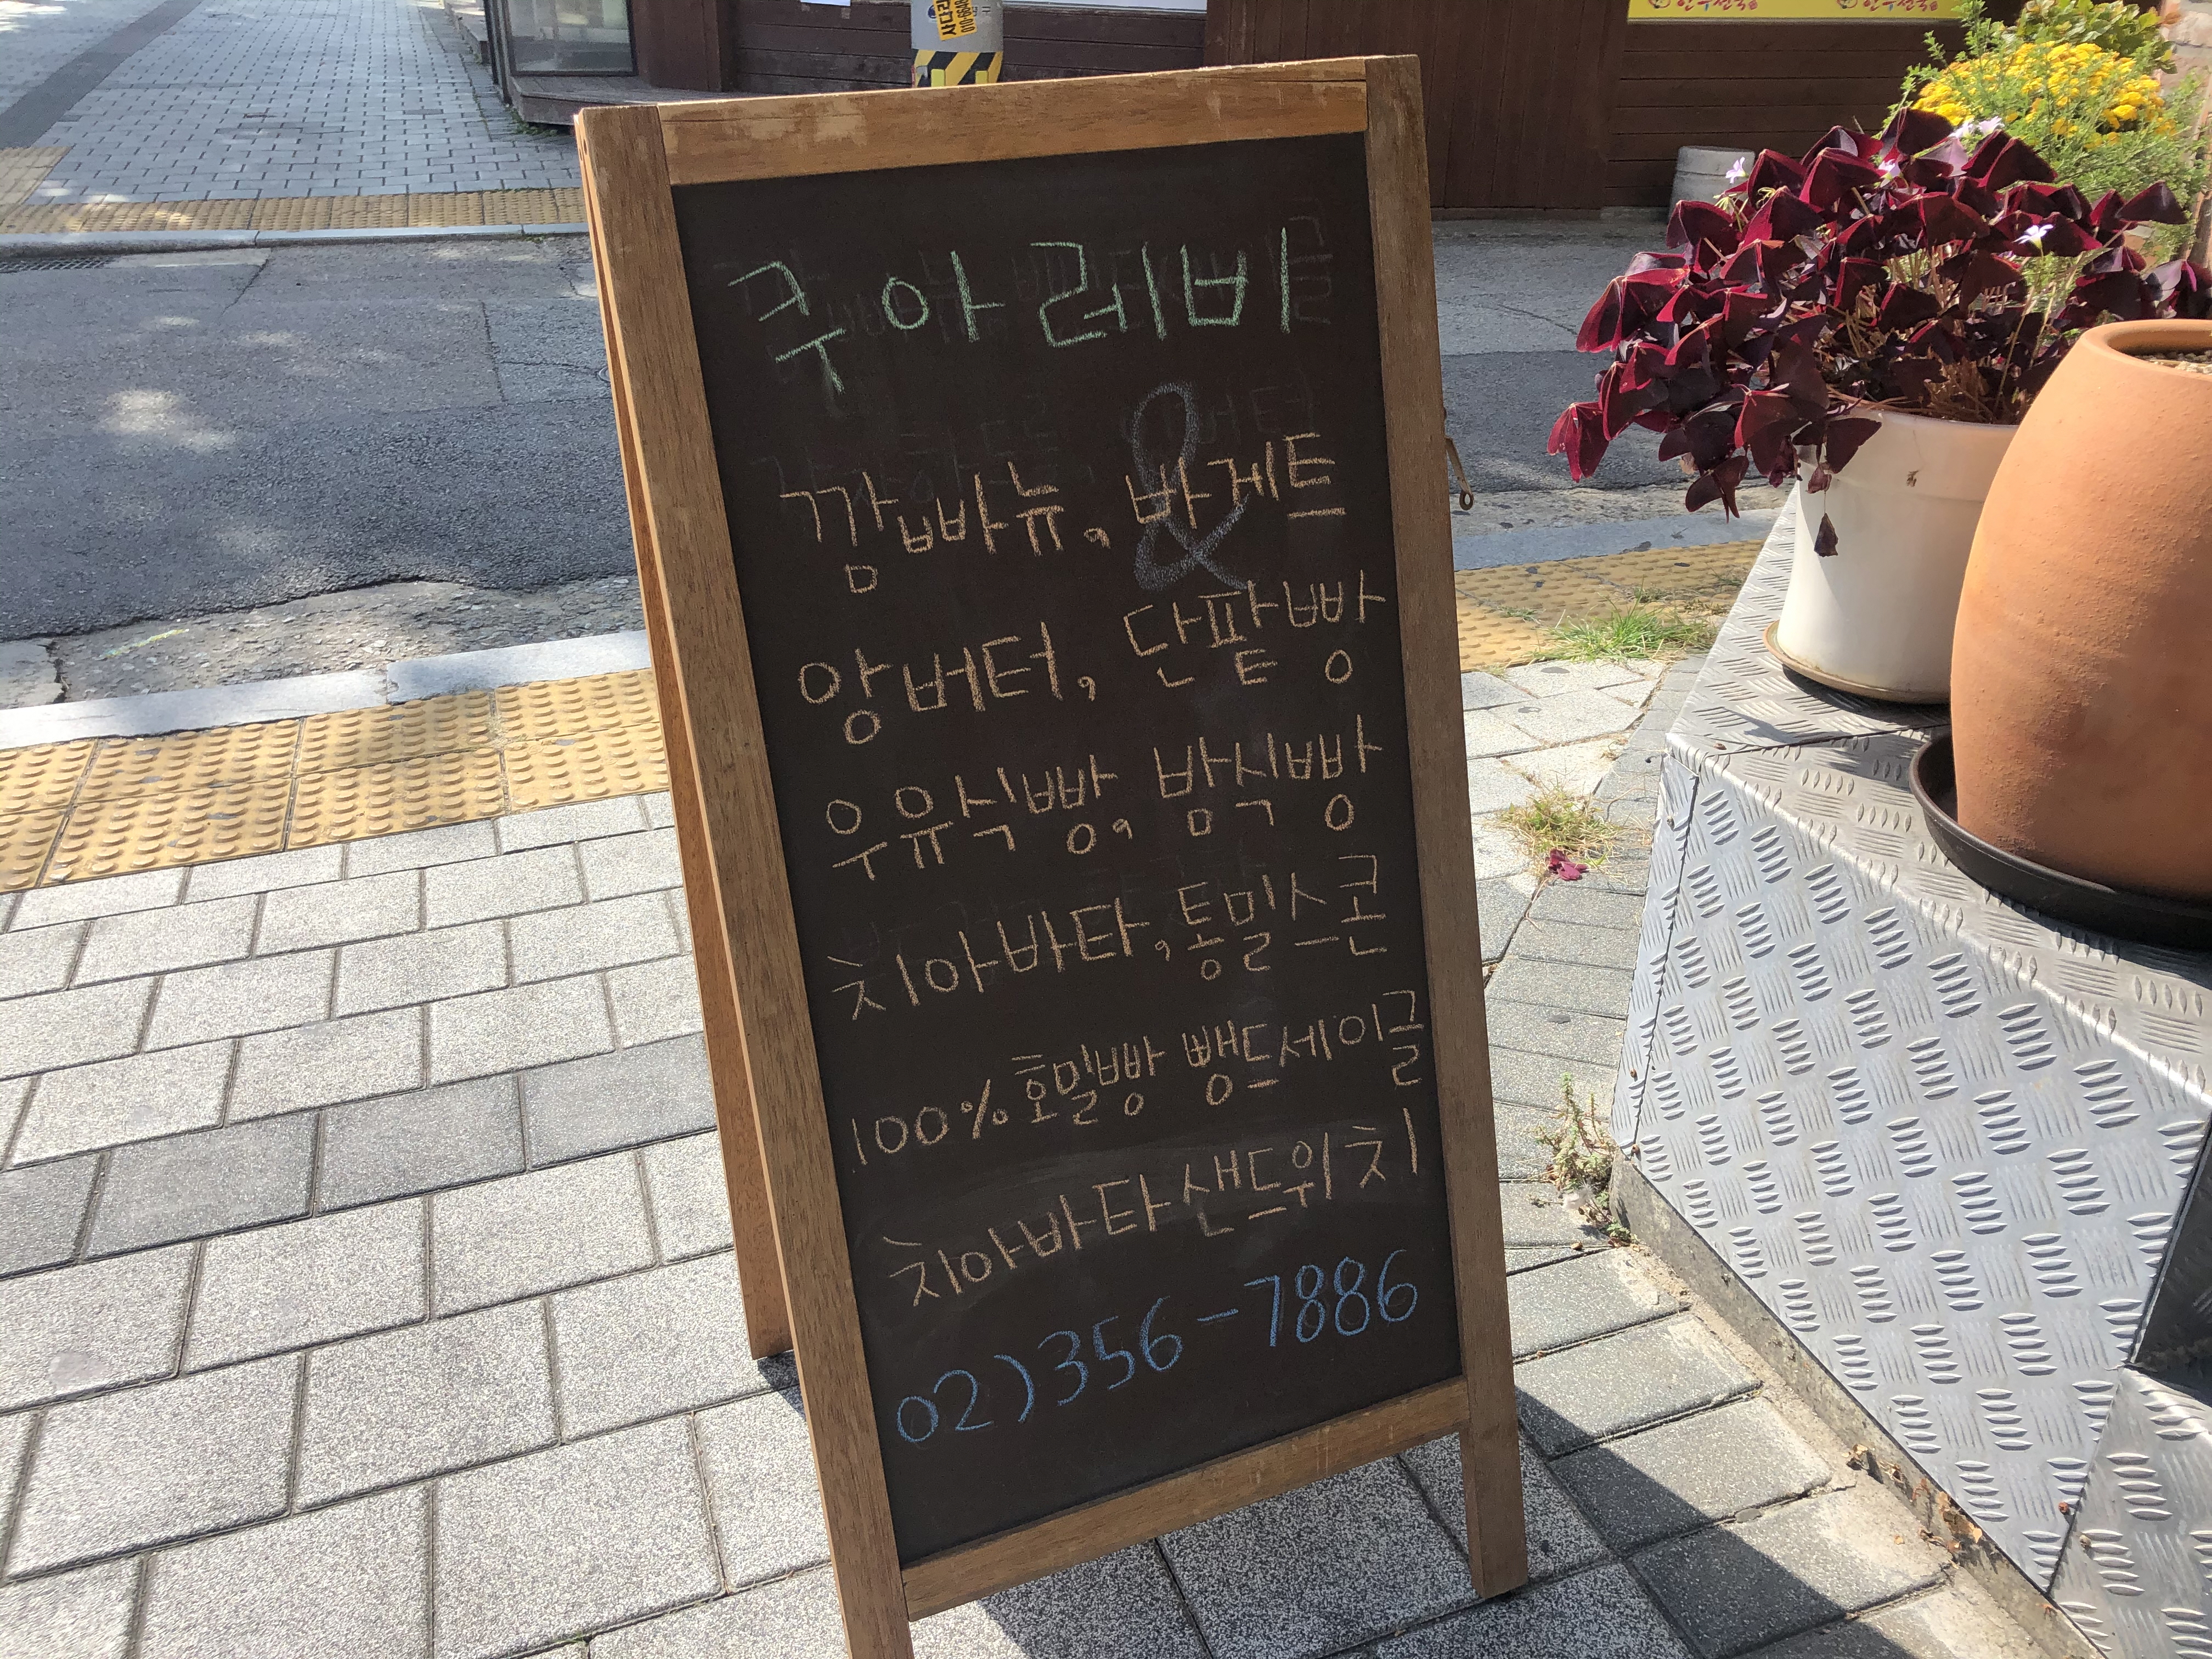 쿠아레비
&
깜빠뉴, 바게트
앙버터, 단팥빵
우유식빵, 밤식빵
치아바타, 통밀스콘
100% 호밀빵 뺑드세이글
치아바타샌드위치
02)356-7886